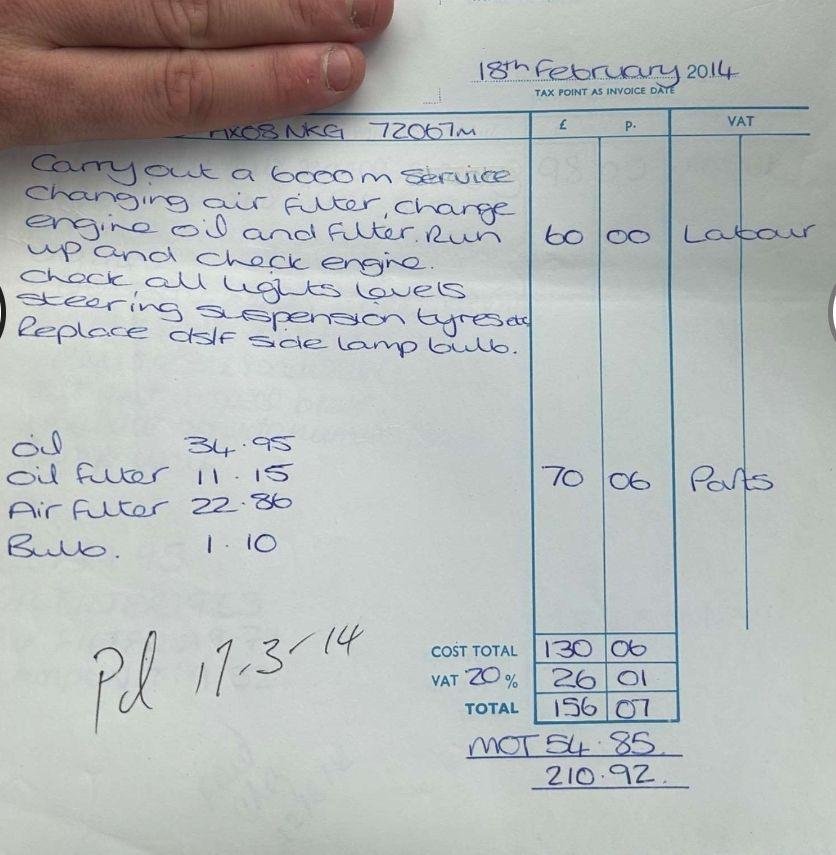 18th February 2014
TAX POINT AS INVOICE DATE
HX08 NKG 72067m
£ p. VAT
Carry out a 6000m service
changing air filter, change
engine oil and filter. Run
up and check engine.
60 00 Labour
Check all lights levels
steering suspension tyres etc
Replace d/s/f side lamp bulb.
Oil 34.95
Oil filter 11.15
Air filter 22.86
Bulb. 1.10
70 06 Parts
COST TOTAL 130 06
VAT 20 % 26 01
TOTAL 156 07
MOT 54.85
210.92.
Pd 17-3-14